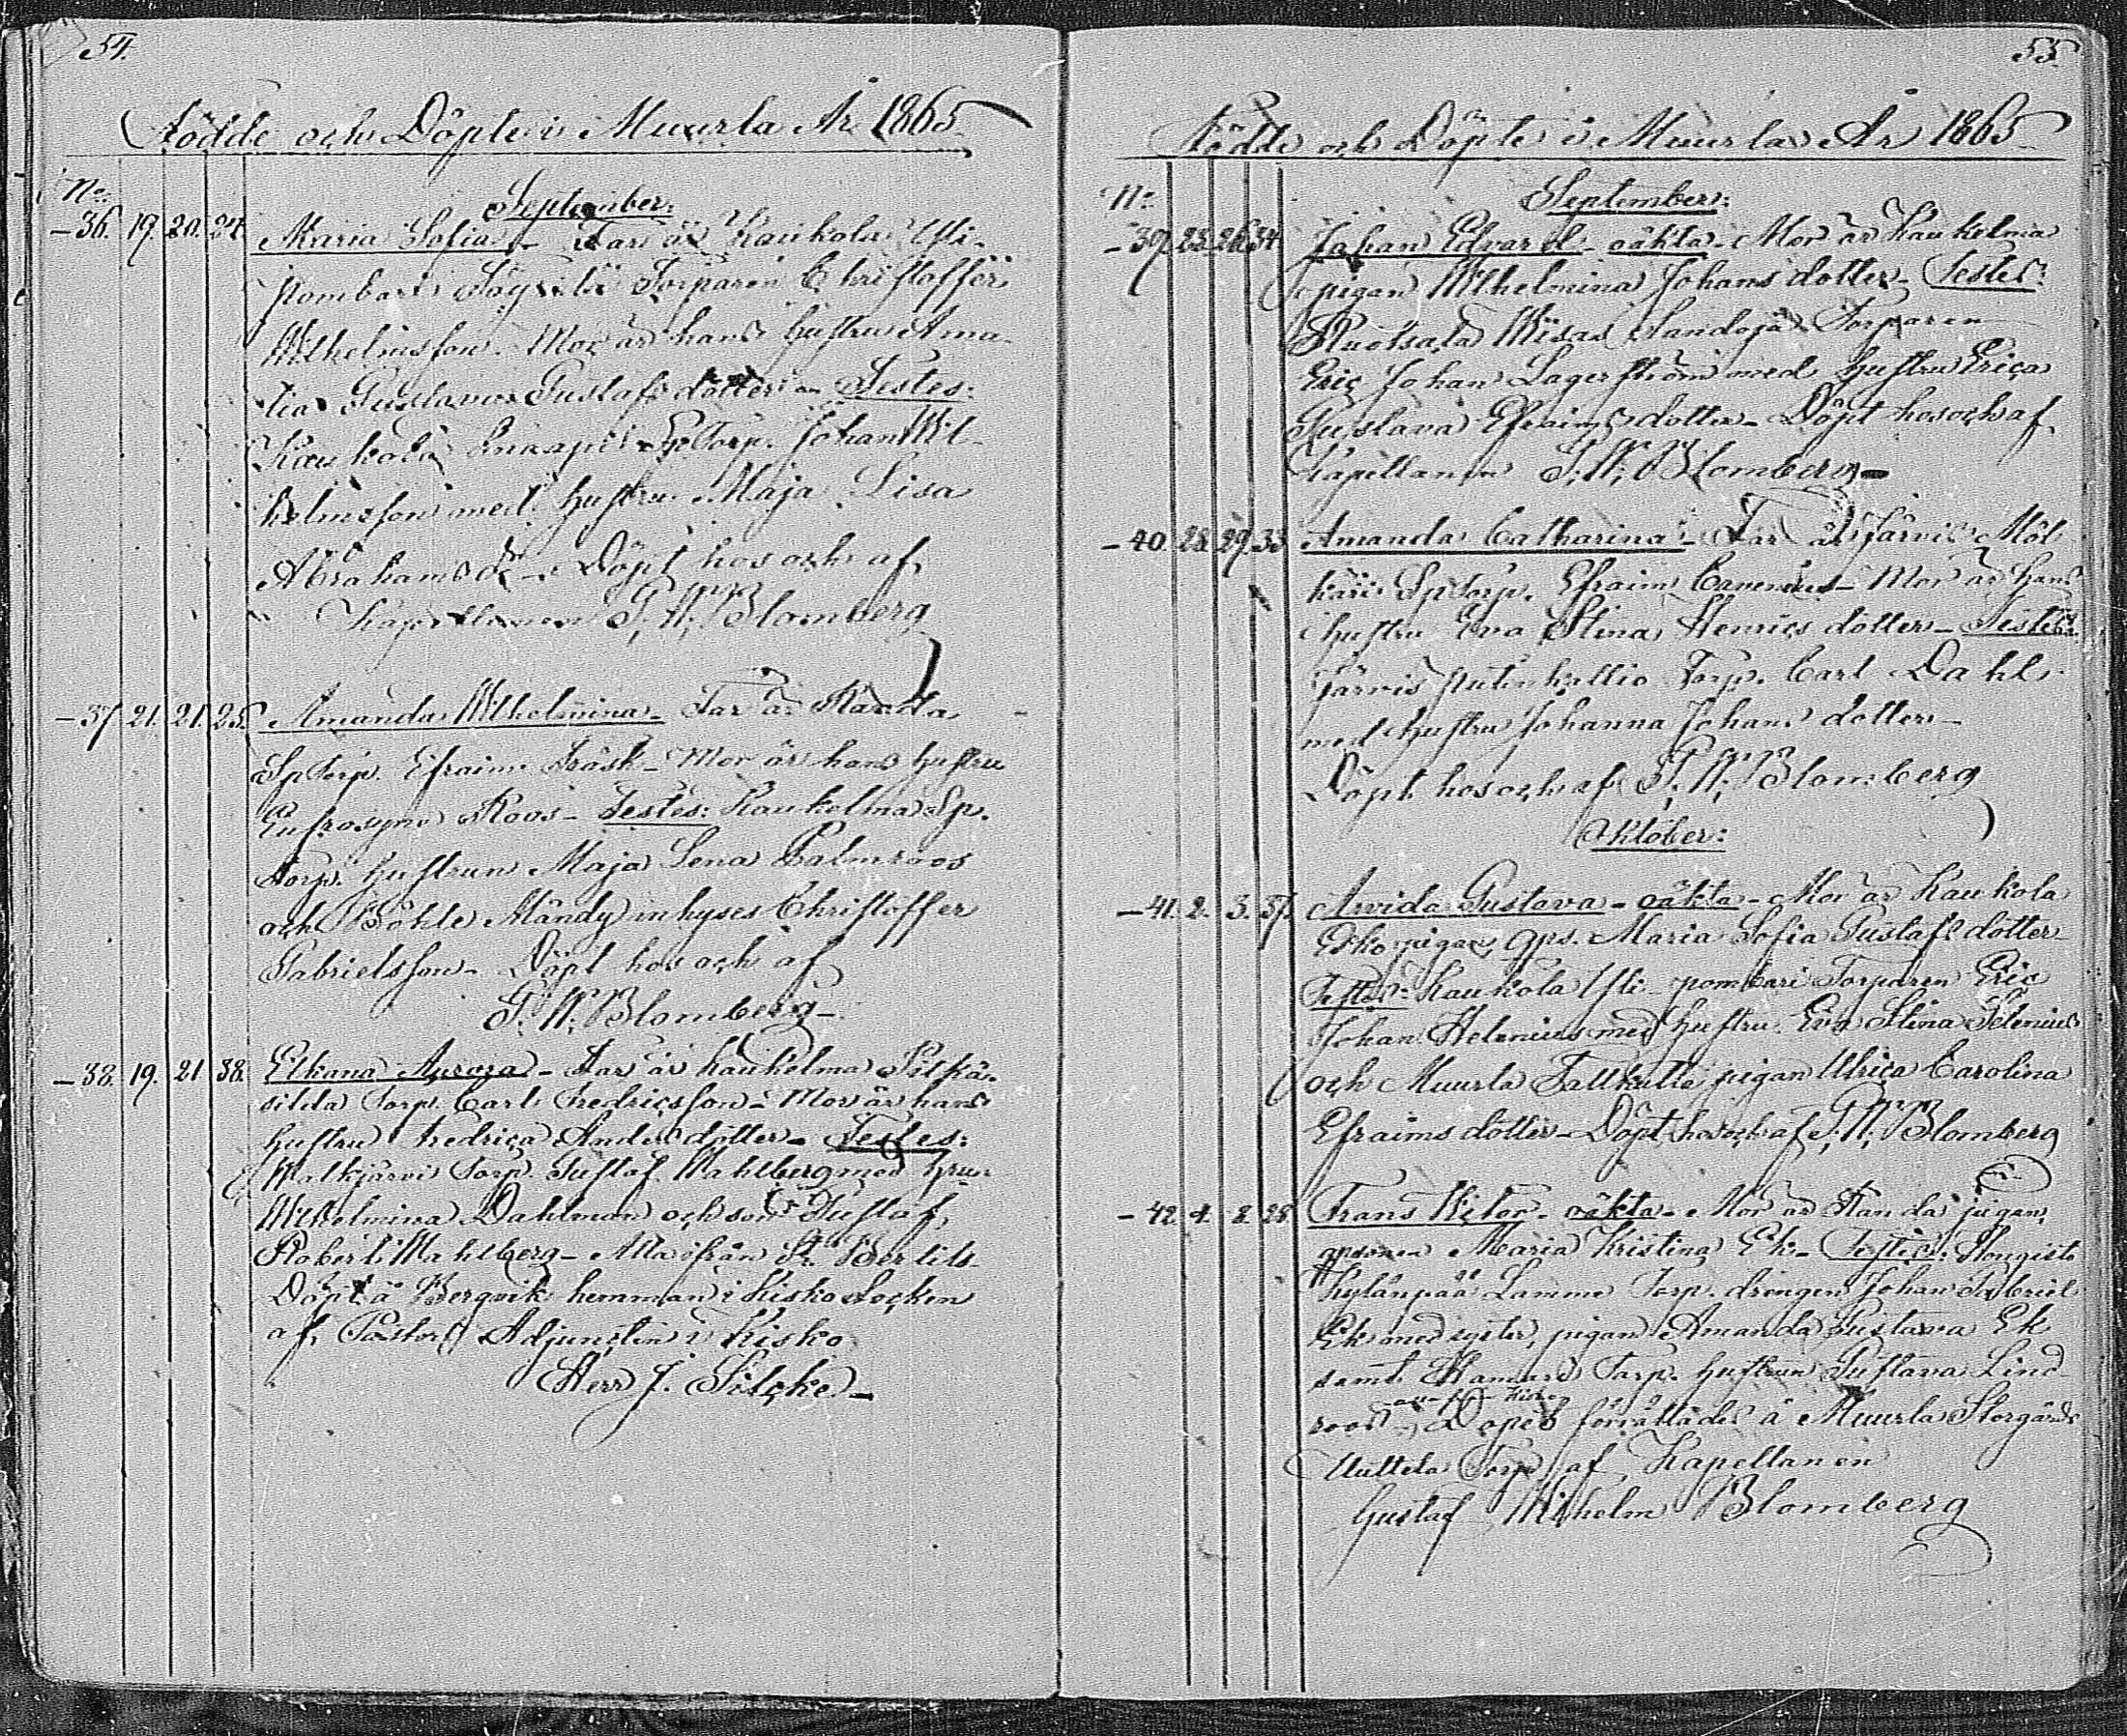 54.
Födde och Döpte i Muurla År 1865
No.
September:
-36. 19. 20. 24. Maria Sofia - Far är Kaukola Yli-
pombari Torparen Christoffer
Wilhelmsson. Mor är hans hustru Ama-
lia Gustava Gustafsdotter - Testes:
Kaukola Knaapi SpTorp. Johan Wil-
helmsson med hustru Maja Lisa
Abrahamsdr - Döpt hos och af
Kapellanen G. W. Blomberg
-37. 21. 21. 25. Amanda Wilhelmina - Far är Raanda
SpTorp. Efraim Träsk - Mor är hans hustru
Eufrosyne Roos - Testes: Kaukelma Sp.
Torp. hustrun Maja Lena Palmroos
och Böhle Mändy inhyses Christoffer
Gabrielsson - Döpt hos och af
G. W. Blomberg -
-38. 19. 21. 38. Elkana Aurora - Far är Kaukelma Pitkä-
silda Torp. Carl Fredricsson - Mor är hans
hustru Fredrica Andersdotter - Testes:
Walkjärvi Torp. Gustaf Wahlberg med hru
Wilhelmina Dahlman och son Gustaf
Robert Wahlberg - Alla ifrån St. Bertils
Döpt å Bergvik hemman i Kisko Socken
af Pastors Adjuncten i Kisko
Herr J. Silcke -
55.
Födde och Döpte i Muurla År 1865
No.
September:
-39. 25. 26. 34. Johan Edvard - oäkta - Mor är Kaukelma
pigan Wilhelmina Johansdotter - Testes:
Ruotsala Wisas Sandoja Torparen
Eric Johan Lagerström med hustru Erica
Gustava Efraimsdotter - Döpt hos och af
Kapellanen G. W. Blomberg -
-40. 28. 29. 33. Amanda Catharina - Far är Järvis Möl
käri SpTorp. Efraim Cavenius - Mor är hans
hustru Eva Stina Henricsdotter - Testes:
Järvis Torp. Carl Dahl
med hustru Johanna Johansdotter -
Döpt hos och af G. W. Blomberg
Oktober:
-41. 2. 3. 37. Arvida Gustava - oäkta - Mor är Kaukola
Erko pigan qps. Maria Sofia Gustafsdotter -
Testes: Kaukola Yli-pombari Torparen Eric
Johan Helenius med hustru Eva Stina Selenius
och Muurla Tallkulla pigan Ulrica Carolina
Efraimsdotter - Döpt hos och af G. W. Blomberg
-42. 4. 8. 28. Frans Victor - oäkta - Mor är Handa pigan
qpsonen Maria Kristina Ek - Testes: Hongisto
Kylänpää Lamme Torp. drengen Johan Gabriel
Ek med syster, pigan Amanda Gustava Ek
samt Hamari Torp. hustrun Gustava Lind-
roos - alla från Kisko Dopet förrättades å Muurla Storgårds
Uuttela Torp af Kapellanen
Gustaf Wilhelm Blomberg